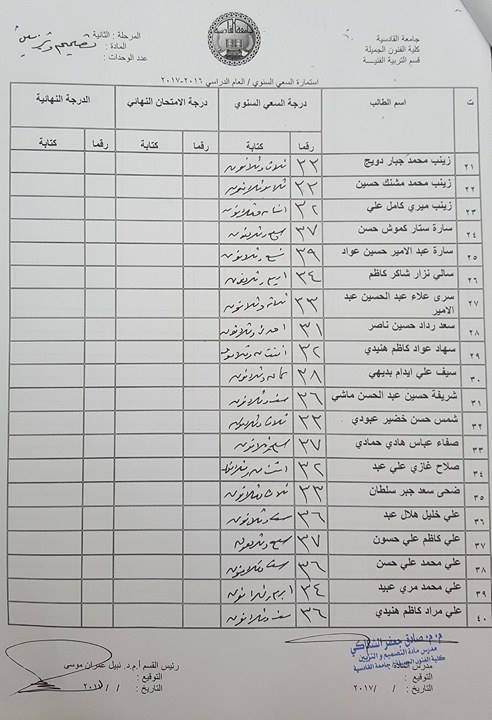 جامعة القادسية
كلية الفنون الجميلة
قسم التربية الفنية
المرحلة : الثانية
المادة : تصميم وتزيين
عدد الوحدات :
استمارة السعي السنوي / العام الدراسي ٢٠١٦-٢٠١٧
ت اسم الطالب درجة السعي السنوي درجة الامتحان النهائي الدرجة النهائية
رقما كتابة رقما كتابة رقما كتابة
٢١ زينب محمد جبار دويج ٣٣ ثلاث وثلاثون
٢٢ زينب محمد مشنك حسين ٣٣ ثلاث وثلاثون
٢٣ زينب ميري كامل علي ٣٢ اثنان وثلاثون
٢٤ سارة ستار كموش حسن ٣٧ سبع وثلاثون
٢٥ سارة عبد الامير حسين عواد ٣٩ تسع وثلاثون
٢٦ سالي نزار شاكر كاظم ٣٤ اربع وثلاثون
٢٧ سرى علاء عبد الحسين عبد الامير ٣٣ ثلاثة وثلاثون
٢٨ سعد رداد حسين ناصر ٣١ احدى وثلاثون
٢٩ سهاد عواد كاظم هنيدي ٣٢ اثنان وثلاثون
٣٠ سيف علي ايدام بديهي ٣٨ ثمان وثلاثون
٣١ شريفة حسين عبد الحسن ماشي ٣٦ ست وثلاثون
٣٢ شمس حسن خضير عبودي ٣٣ ثلاث وثلاثون
٣٣ صفاء عباس هادي حمادي ٣٧ سبع وثلاثون
٣٤ صلاح غازي علي عبد ٣٢ اثنان وثلاثون
٣٥ ضحى سعد جبر سلطان ٣٣ ثلاث وثلاثون
٣٦ علي خليل هلال عبد ٣٦ ست وثلاثون
٣٧ علي كاظم علي حسون ٣٧ سبع وثلاثون
٣٨ علي محمد علي حسن ٣٦ ست وثلاثون
٣٩ علي محمد مري عبيد ٣٤ اربع وثلاثون
٤٠ علي مراد كاظم هنيدي ٣٦ ست وثلاثون
م.م. صادق جعفر
مدرس مادة التصميم والتزيين
كلية الفنون الجميلة / جامعة القادسية
مدرس المادة
التوقيع :
التاريخ : / / ٢٠١٧
رئيس القسم أ.م.د. نبيل عمران موسى
التوقيع :
التاريخ : / / ٢٠١٧